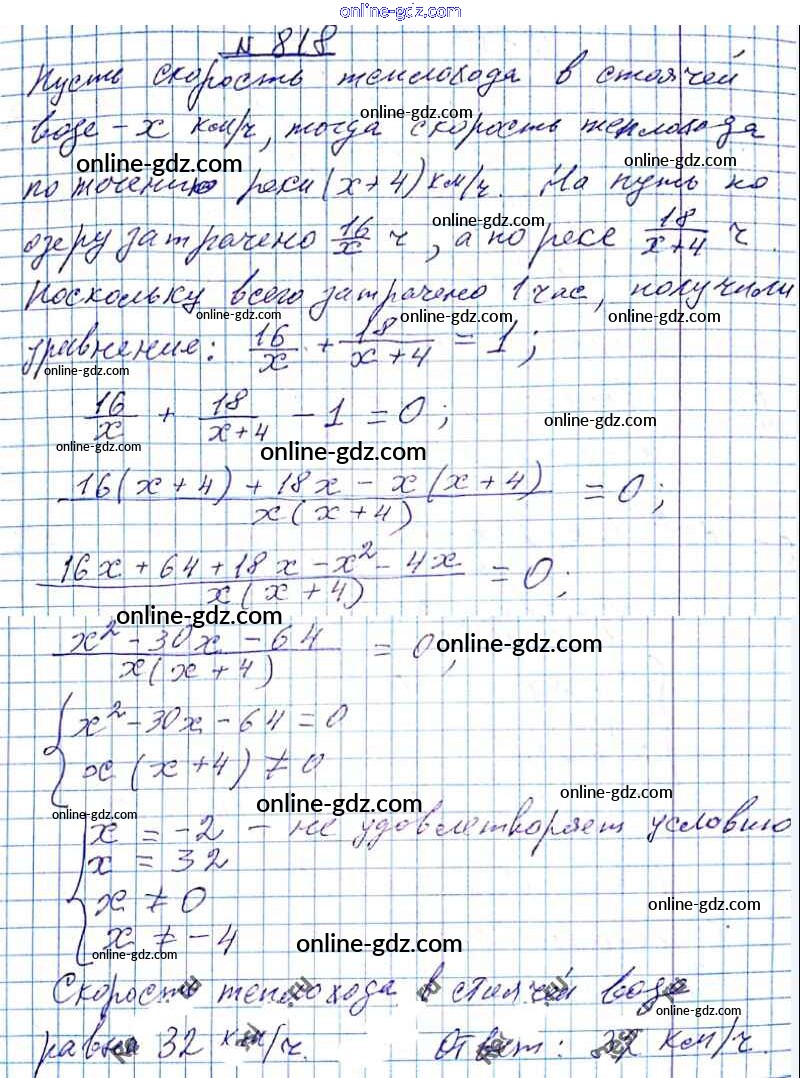 online-gdz.com
N 818
Пусть скорость теплохода в стоячей
online-gdz.com
воде - x км/ч, тогда скорость теплохода
online-gdz.com
online-gdz.com
по течению реки (x+4) км/ч. На путь по
online-gdz.com
озеру затрачено 16/x ч, а по реке 18/(x+4) ч.
Поскольку всего затрачено 1 час, получили
online-gdz.com online-gdz.com online-gdz.com
уравнение: 16/x + 18/(x+4) = 1;
online-gdz.com
16/x + 18/(x+4) - 1 = 0;
online-gdz.com
online-gdz.com online-gdz.com
(16(x+4)+18x-x(x+4))/(x(x+4)) = 0;
(16x+64+18x-x²-4x)/(x(x+4)) = 0;
online-gdz.com
(x²-30x-64)/(x(x+4)) = 0;
online-gdz.com
{ x²-30x-64=0
x(x+4)≠0
online-gdz.com
online-gdz.com online-gdz.com
{ x = -2 - не удовлетворяет условию
x = 32
x ≠ 0
online-gdz.com
x ≠ -4
online-gdz.com online-gdz.com
Скорость теплохода в стоячей воде
online-gdz.com
равна 32 км/ч. Ответ: 32 км/ч.